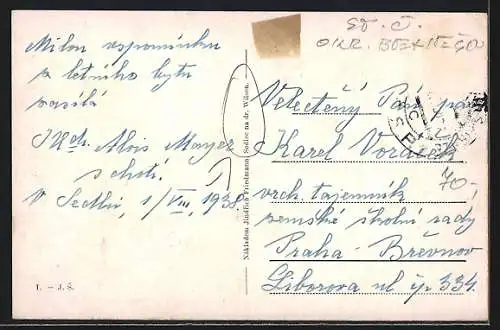 Milou vzpomínku
z letního bytu
zasílá
MUdr. Alois Mayer
s chotí.
V Sedlci, 1/VIII, 1938
1. - J. Š.
Nákladem Jindřich Friedmann Sedlec na dr. Wilson.
St. Č.
OKR.
Velectěný Pán pan
Karel Voráček
70,-
vrch. tajemník
zemské školní rady
Praha - Břevnov
Liborova ul čp 334.